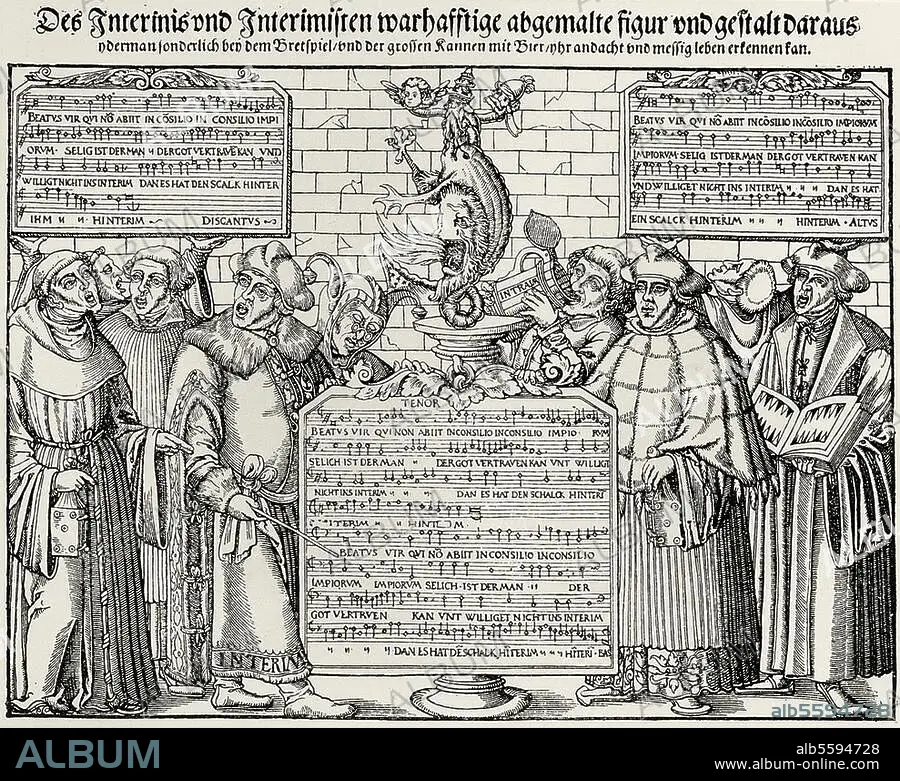 Des Interims vnd Interimisten warhafftige abgemalte figur vnd gestalt daraus
yderman sonderlich bey dem Bretspiel/vnd der grossen Kannen mit Bier/yhr andacht vnd messig leben erkennen kan.
BEATVS VIR QVI NŌ ABIIT IN CŌSILIO IN CONSILIO IMPI
ORVM · SELIG IST DER MAN " DER GOT VERTRAVĒ KAN VND
WILLIGT NICHT INS INTERIM DAN ES HAT DEN SCALK HINTER
IHM " " HINTERIM DISCANTVS
BEATVS VIR QVI NŌ ABIIT IN CŌSILIO INCŌSILIO IMPIORVM
IMPIORVM SELIG IST DER MAN DER GOT VERTRAVEN KAN
VND WILLIGET NICHT INS INTERIM " " " DAN ES HAT
EIN SCALCK HINTERIM " " " HINTERIM · ALTVS
INTRAP
TENOR
BEATVS VIR QVI NON ABIIT INCONSILIO INCONSILIO IMPIO RVM
SELICH IST DER MAN " DER GOT VERTRAVEN KAN VNT WILLIGT
NICHT INS INTERIM " " " DAN ES HAT DEN SCHALCK HINTERI
INTERIM " " HINTERIM
BEATVS VIR QVI NŌ ABIIT IN CONSILIO INCONSILIO
IMPIORVM IMPIORVM SELICH · IST DER MAN " DER
GOT VERTRVEN KAN VNT WILLIGET NICHT INS INTERIM
" " " " DAN ES HAT DE SCHALCK HĪTERIM " " " HĪTERI · BAS
INTERIM
ALBUM
alb5594728
www.album-online.com